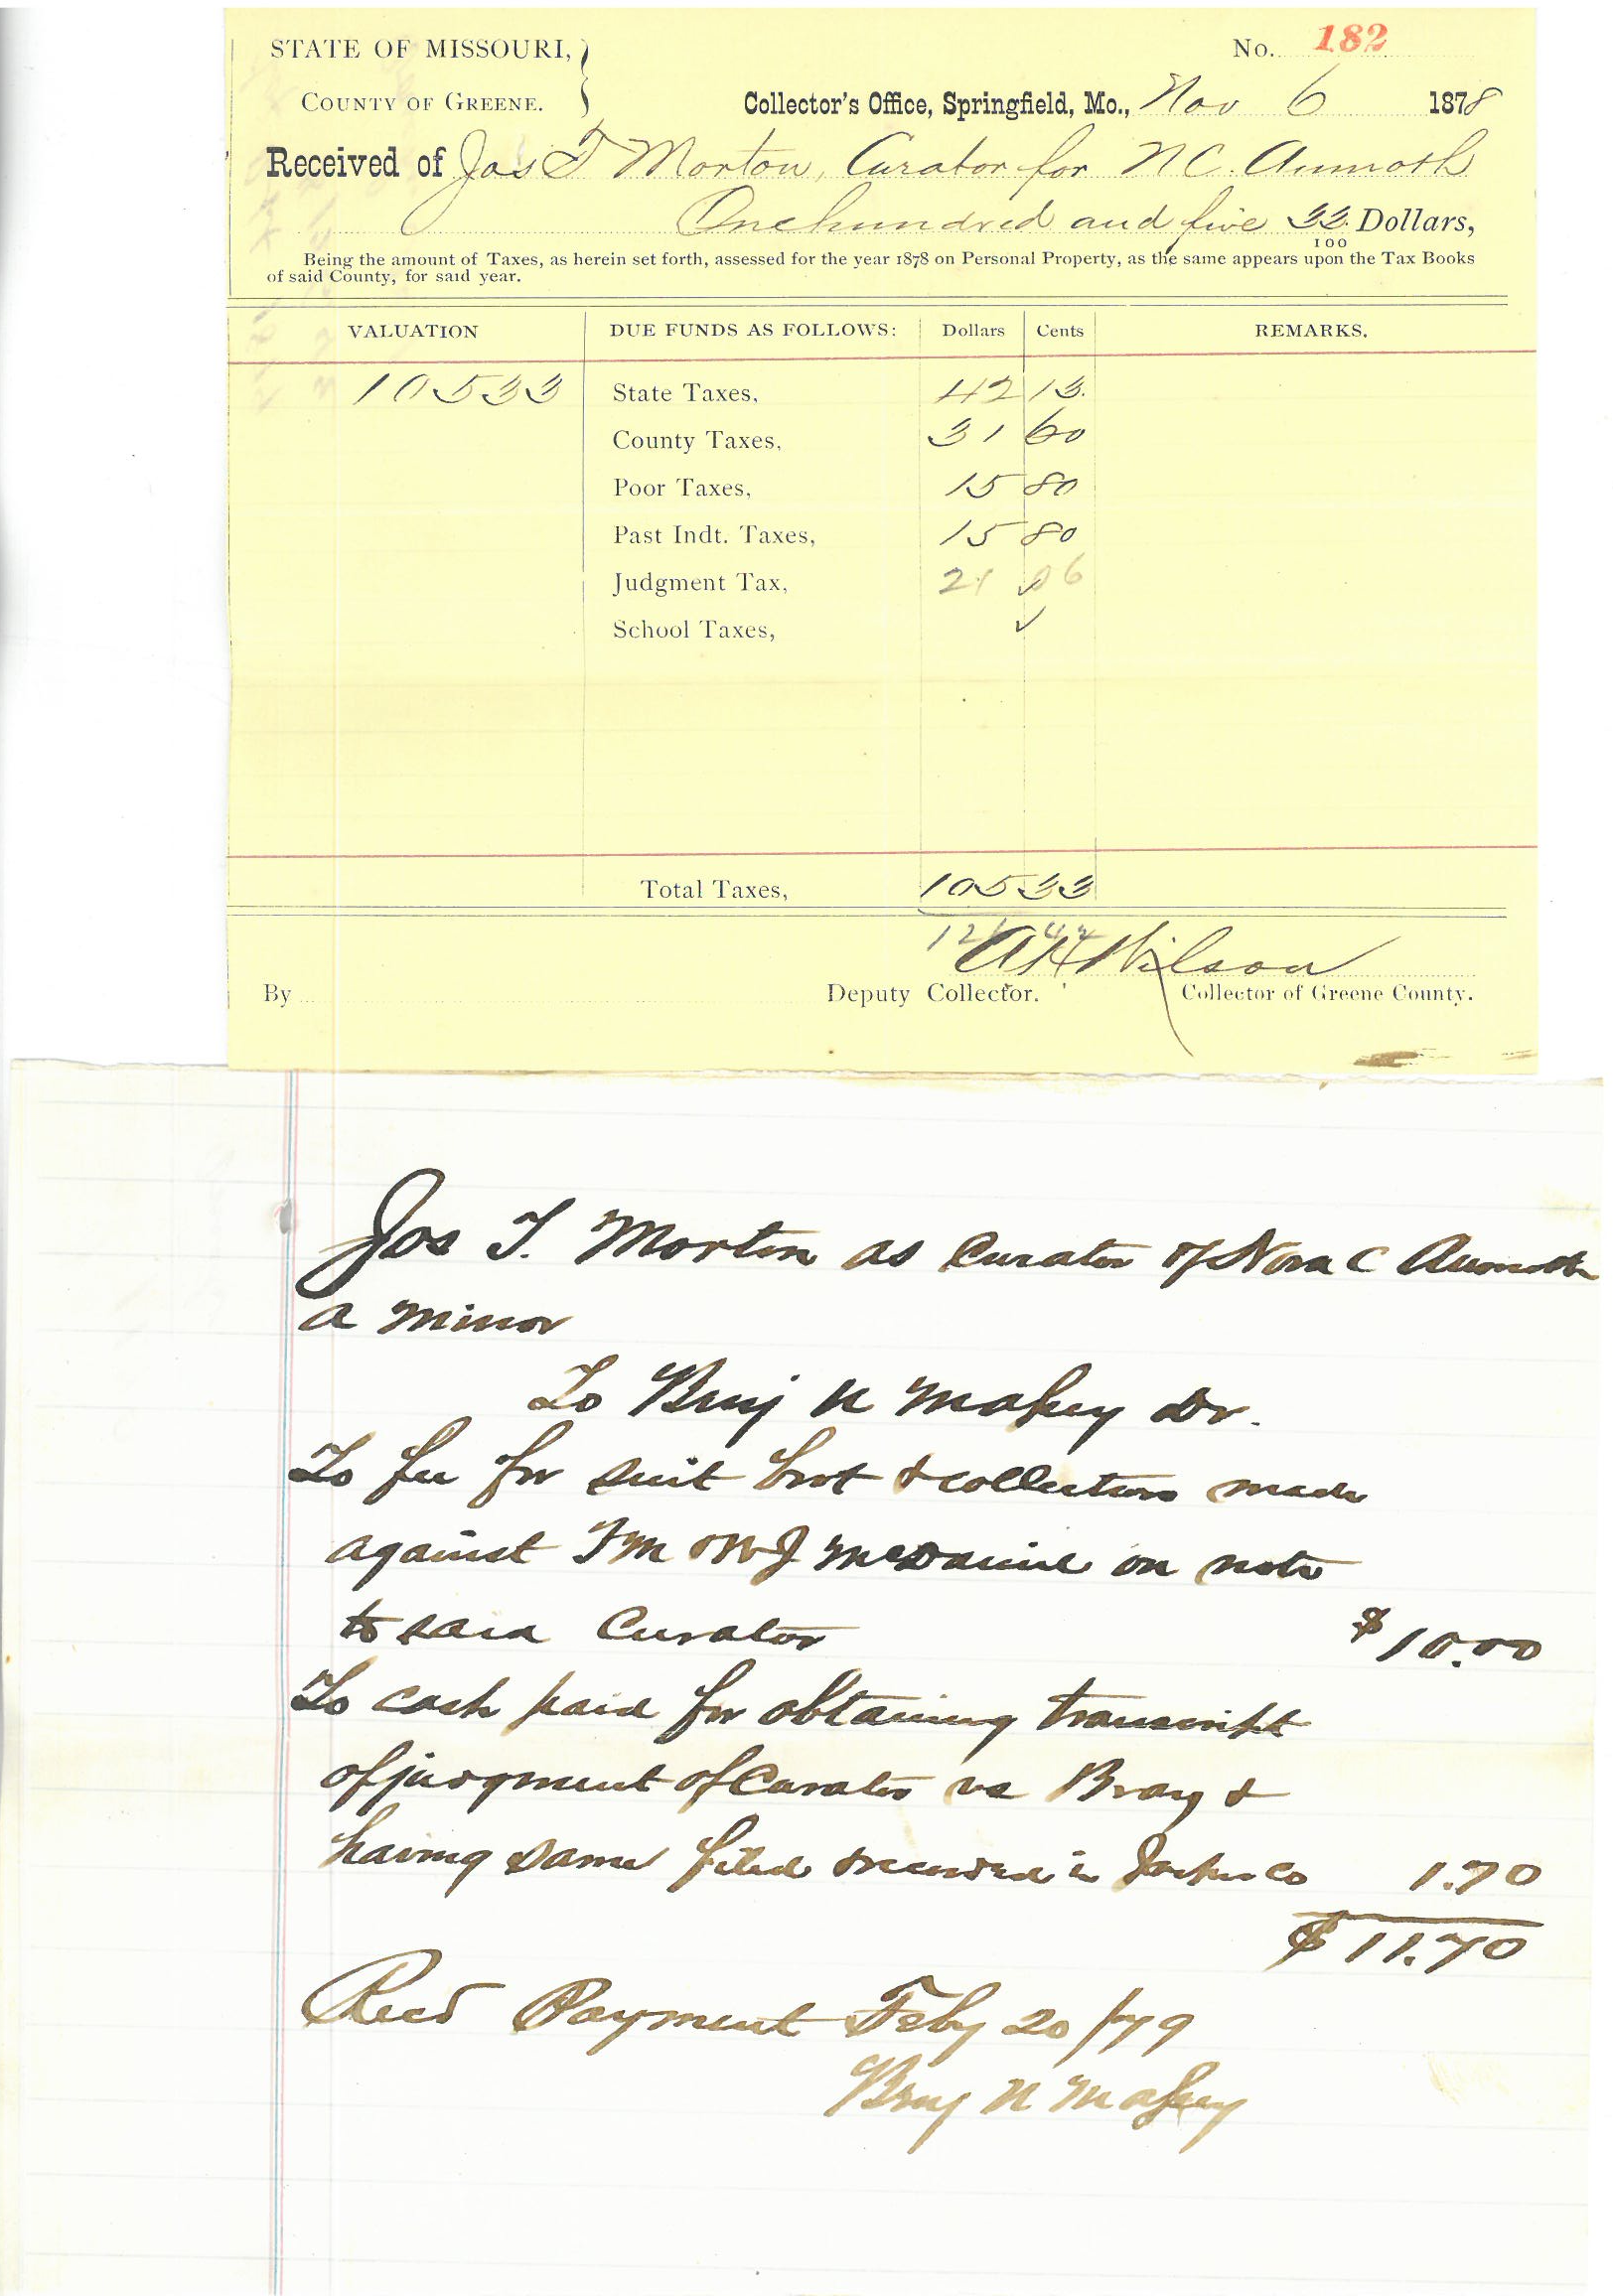 STATE OF MISSOURI,
COUNTY OF GREENE.
No. 182
Collector's Office, Springfield, Mo., Nov 6 1878
Received of Jas T Morton, Curator for N C. Aumoth
One hundred and five 33/100 Dollars,
Being the amount of Taxes, as herein set forth, assessed for the year 1878 on Personal Property, as the same appears upon the Tax Books
of said County, for said year.
VALUATION DUE FUNDS AS FOLLOWS: Dollars Cents REMARKS.
10533 State Taxes, 42 13.
County Taxes, 31 60
Poor Taxes, 15 80
Past Indt. Taxes, 15 80
Judgment Tax, 21 06
School Taxes, ✓
Total Taxes, 105 33
A H Wilson
By Deputy Collector. Collector of Greene County.
Jos T. Morton as Curator of Nora C Aumoth
a minor
To Benj N Mahey Dr.
To fee for suit brot & collections made
against McDaniel on note
to said Curator $10.00
To cash paid for obtaining transcript
of judgment of Curator vs Bray &
having same filed & recorded in Jasper Co 1.70
$11.70
Recd Payment Feby 20/79
Benj N Mahey